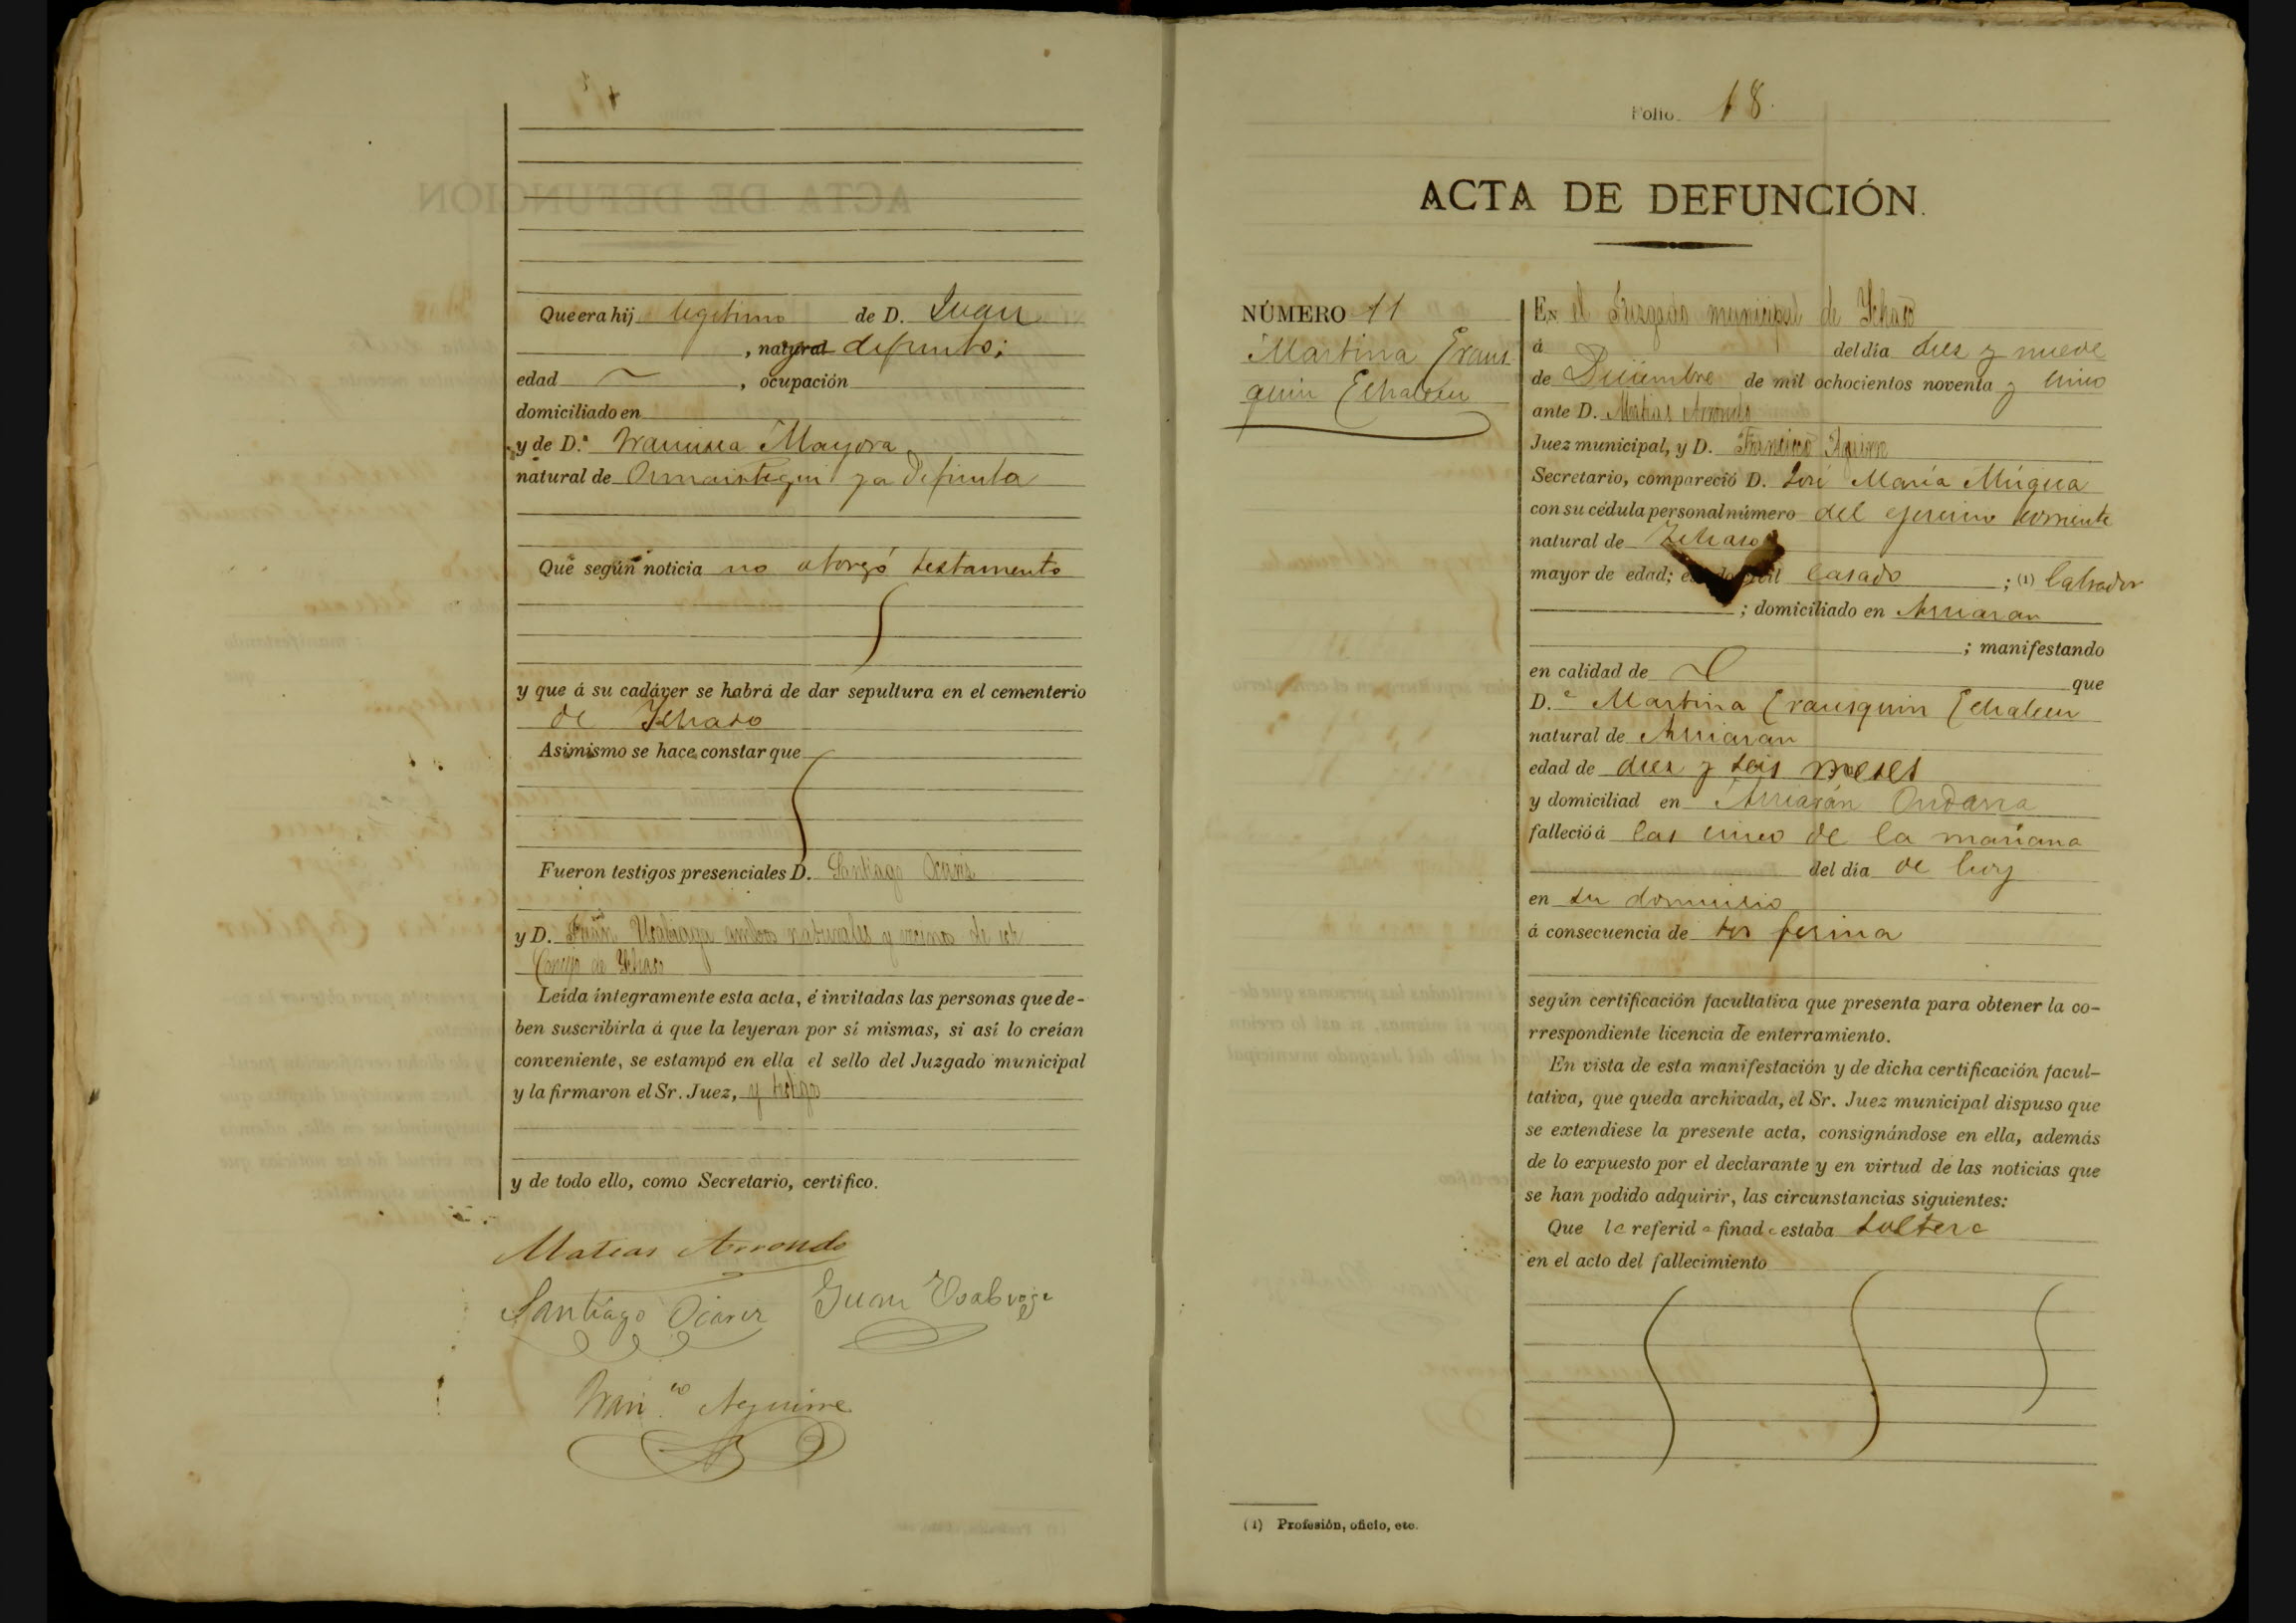 Que era hij legitimo de D. Juan
, natural defunto;
edad , ocupación
domiciliado en
y de D.ª Francisca Mayora
natural de Ormaiztegui ya defunta
Que según noticia no otorgó testamento
y que á su cadáver se habrá de dar sepultura en el cementerio
de Ichaso
Asimismo se hace constar que
Fueron testigos presenciales D. Santiago Ocariz
y D. Juan Usabiaga ambos naturales y vecinos de este
Concejo de Ichaso
Leída íntegramente esta acta, é invitadas las personas que de-
ben suscribirla á que la leyeran por sí mismas, si así lo creían
conveniente, se estampó en ella el sello del Juzgado municipal
y la firmaron el Sr. Juez, y testigos
y de todo ello, como Secretario, certifico.
Matias Arrondo
Santiago Ocariz Juan Usabiaga
Fran.co Aguirre
Folio 18.
ACTA DE DEFUNCIÓN.
NÚMERO 11
Martina Eraus
quin Echaleeu
En el Juzgado municipal de Ichaso
á del día diez y nueve
de Diciembre de mil ochocientos noventa y cinco
ante D. Matias Arrondo
Juez municipal, y D. Francisco Aguirre
Secretario, compareció D. José María Múgica
con su cédula personal número del ejercicio corriente
natural de Ichaso
mayor de edad; casado ; (1) labrador
; domiciliado en Arriaran
; manifestando
en calidad de que
D.ª Martina Erausquin Echaleeu
natural de Arriaran
edad de diez y seis meses
y domiciliad en Arriarán Ondarra
falleció á las cinco de la mañana
del día de hoy
en su domicilio
á consecuencia de tos ferina
según certificación facultativa que presenta para obtener la co-
rrespondiente licencia de enterramiento.
En vista de esta manifestación y de dicha certificación facul-
tativa, que queda archivada, el Sr. Juez municipal dispuso que
se extendiese la presente acta, consignándose en ella, además
de lo expuesto por el declarante y en virtud de las noticias que
se han podido adquirir, las circunstancias siguientes:
Que la referida finada estaba soltera
en el acto del fallecimiento
(1) Profesión, oficio, etc.